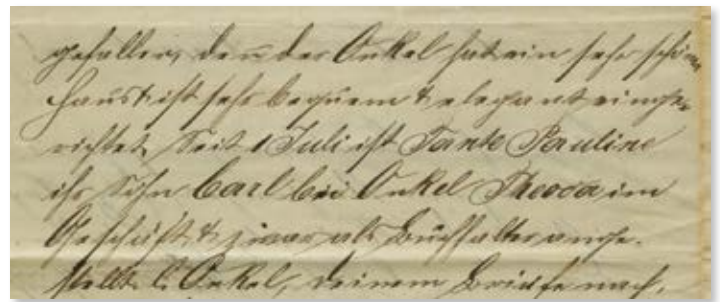 gefallen, denn der Onkel hat ein sehr schönes
Haus & ist sehr bequem & elegant einge-
richtet. Seit 1 Juli ist Tante Pauline
ihr Sohn Carl bei Onkel Theodor im
Geschäft & zwar als Buchhalter ange-
stellt. L. Onkel, Deinem Briefe nach,